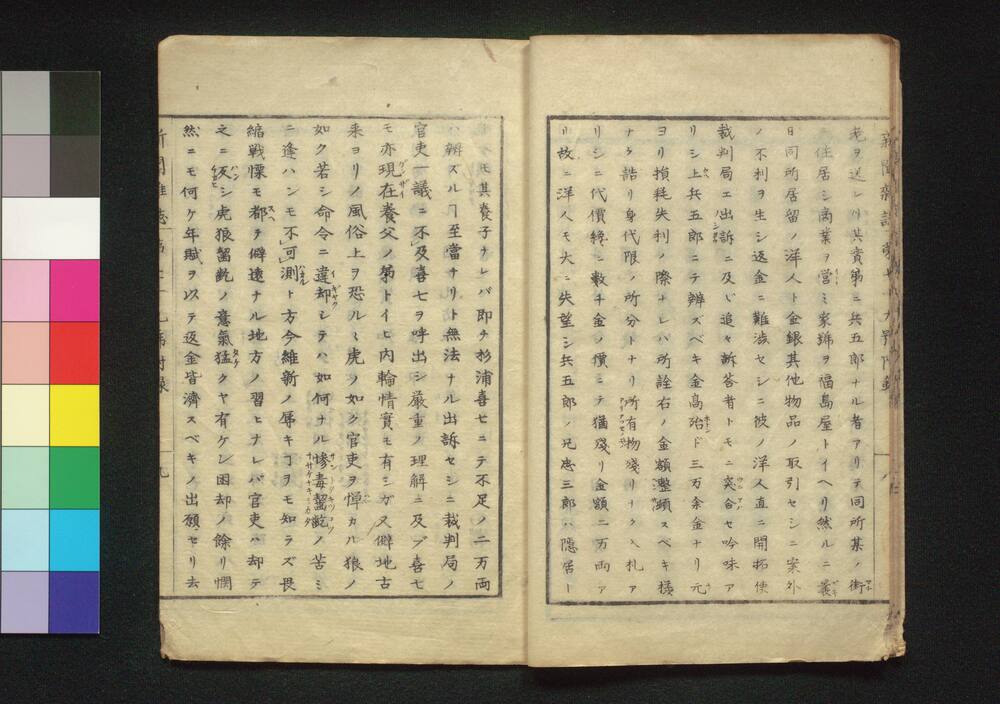 老ヲ送レリ其實弟ニ兵五郎ナル者アリテ同所某ノ街
ニ住居シ商業ヲ營ミ家號ヲ福島屋トイヘリ然ルニ曩
日同所居留ノ洋人ト金銀其他物品ノ取引セシニ案外
ノ不利ヲ生シ返金ニ難渋セシニ彼ノ洋人直ニ開拓使
裁判局エ出訴ニ及ビ追々訴答者トモニ突合セ吟味ア
リシ上兵五郎ニテ辨ズベキ金高殆ド三万余金ナリ元
ヨリ損耗失利ノ際ナレバ所詮右ノ金額濟スベキ様
ナク詰リ身代限ノ所分トナリ所有物残リナク入札ア
リシニ代價纔ニ数千金ノ價ニテ猶残リ金額二万両ア
リ故ニ洋人モ大ニ失望シ兵五郎ノ兄忠三郎ハ隠居ー
モ其養子ナレバ即チ杉浦喜七ニテ不足ノ二万両
ハ辨ズルヿ至當ナリト無法ナル出訴セシニ裁判局ノ
官吏一議ニ不及喜七ヲ呼出シ厳重ノ理解ニ及ブ喜七
モ亦現在養父ノ弟トイヒ内輪情實モ有シガ又僻地古
来ヨリノ風俗上ヲ恐ルヽ虎ノ如ク官吏ヲ憚カル狼ノ
如ク若シ命令ニ違却シテハ如何ナル惨毒齧齕ノ苦ミ
ニ逢ハンモ不可測ト方今維新ノ辱キヿヲモ知ラズ畏
縮戦慄モ都テ僻遠ナル地方ノ習ヒナレバ官吏ハ却テ
之ニ反シ虎狼齧齕ノ意氣猛クヤ有ケン困却ノ餘リ惘
然ニモ何ケ年賦ヲ以テ返金皆濟スベキノ出願セリ去